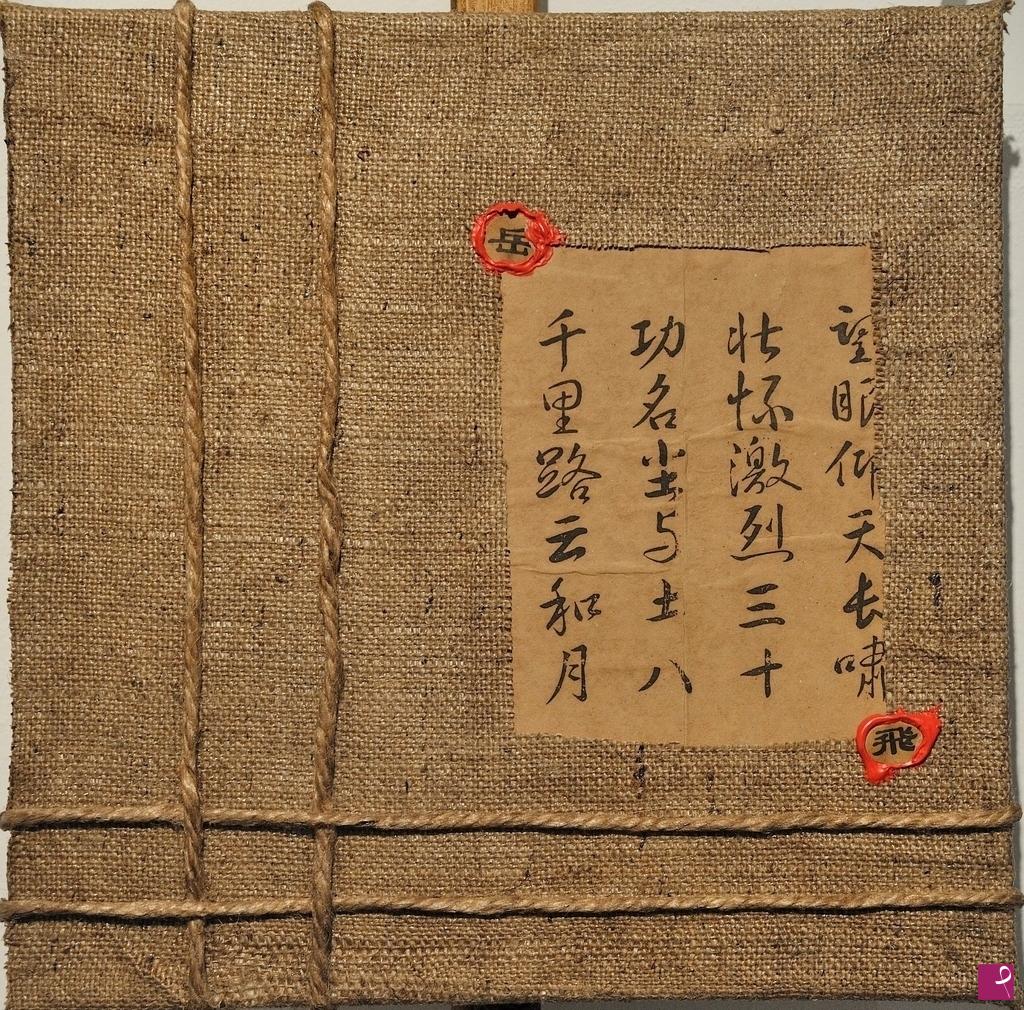 岳
望眼仰天长啸
壮怀激烈三十
功名尘与土八
千里路云和月
飛